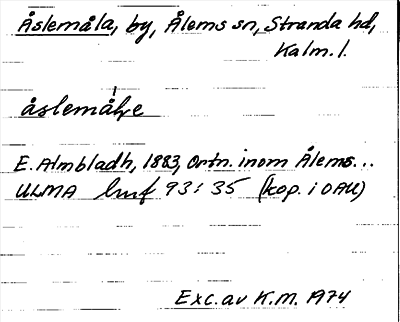 Åslemåla, by, Ålems sn, Stranda hd,
Kalm. l.
åslemåḷe
E. Almbladh, 1883, Ortn. inom Ålems...
ULMA 93:35 (kop. i OAU)
Exc. av K.M. 1974